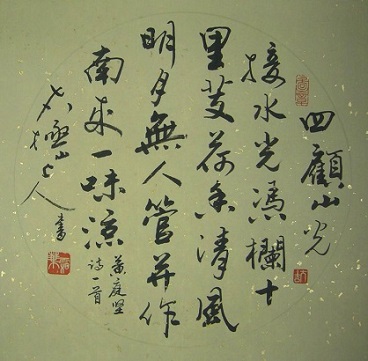 四顧山光
接水光馮欄十
里芰荷香清風
明月無人管并作
南来一味涼
黄庭堅
诗一首
山人書